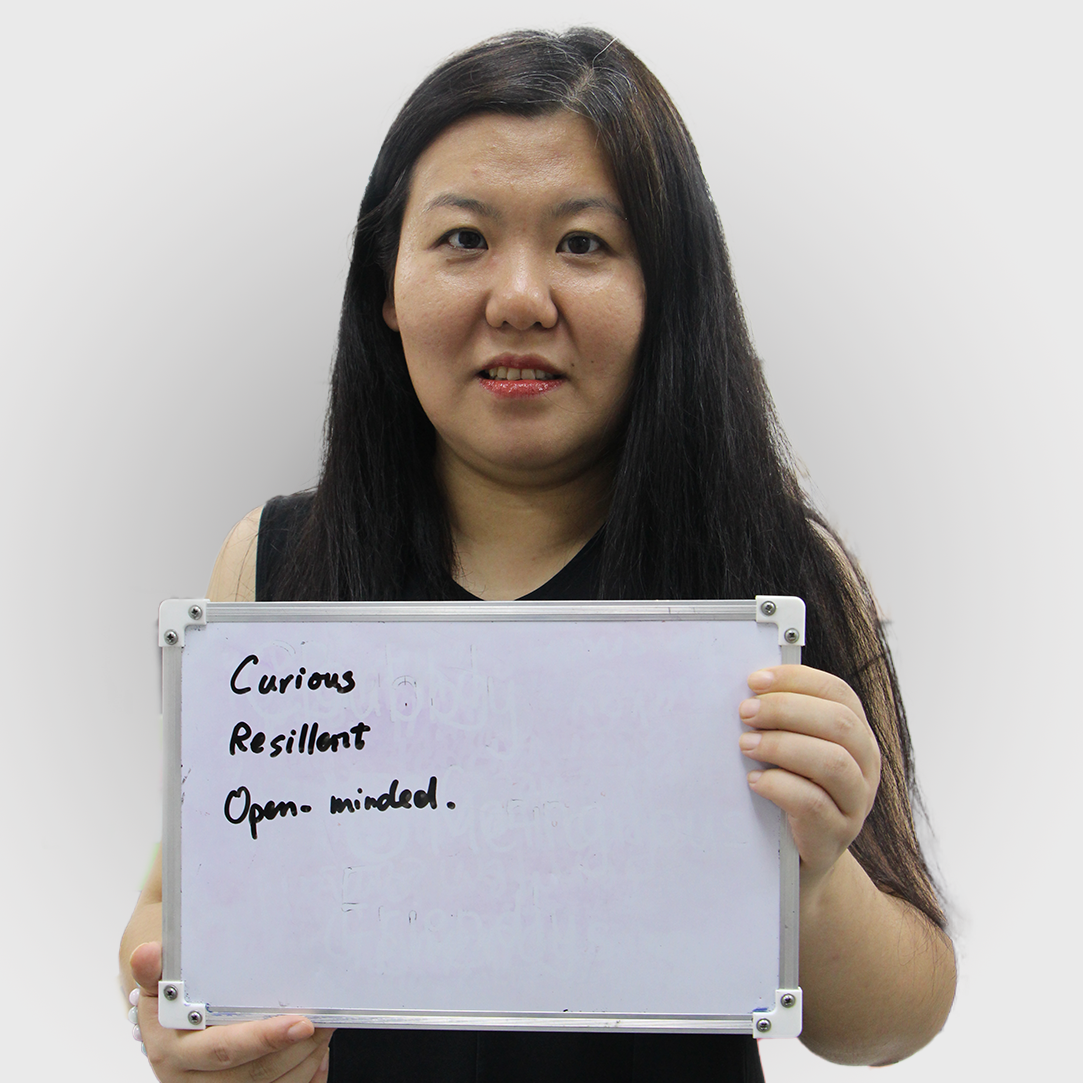 Curious
Resillent
Open-minded.